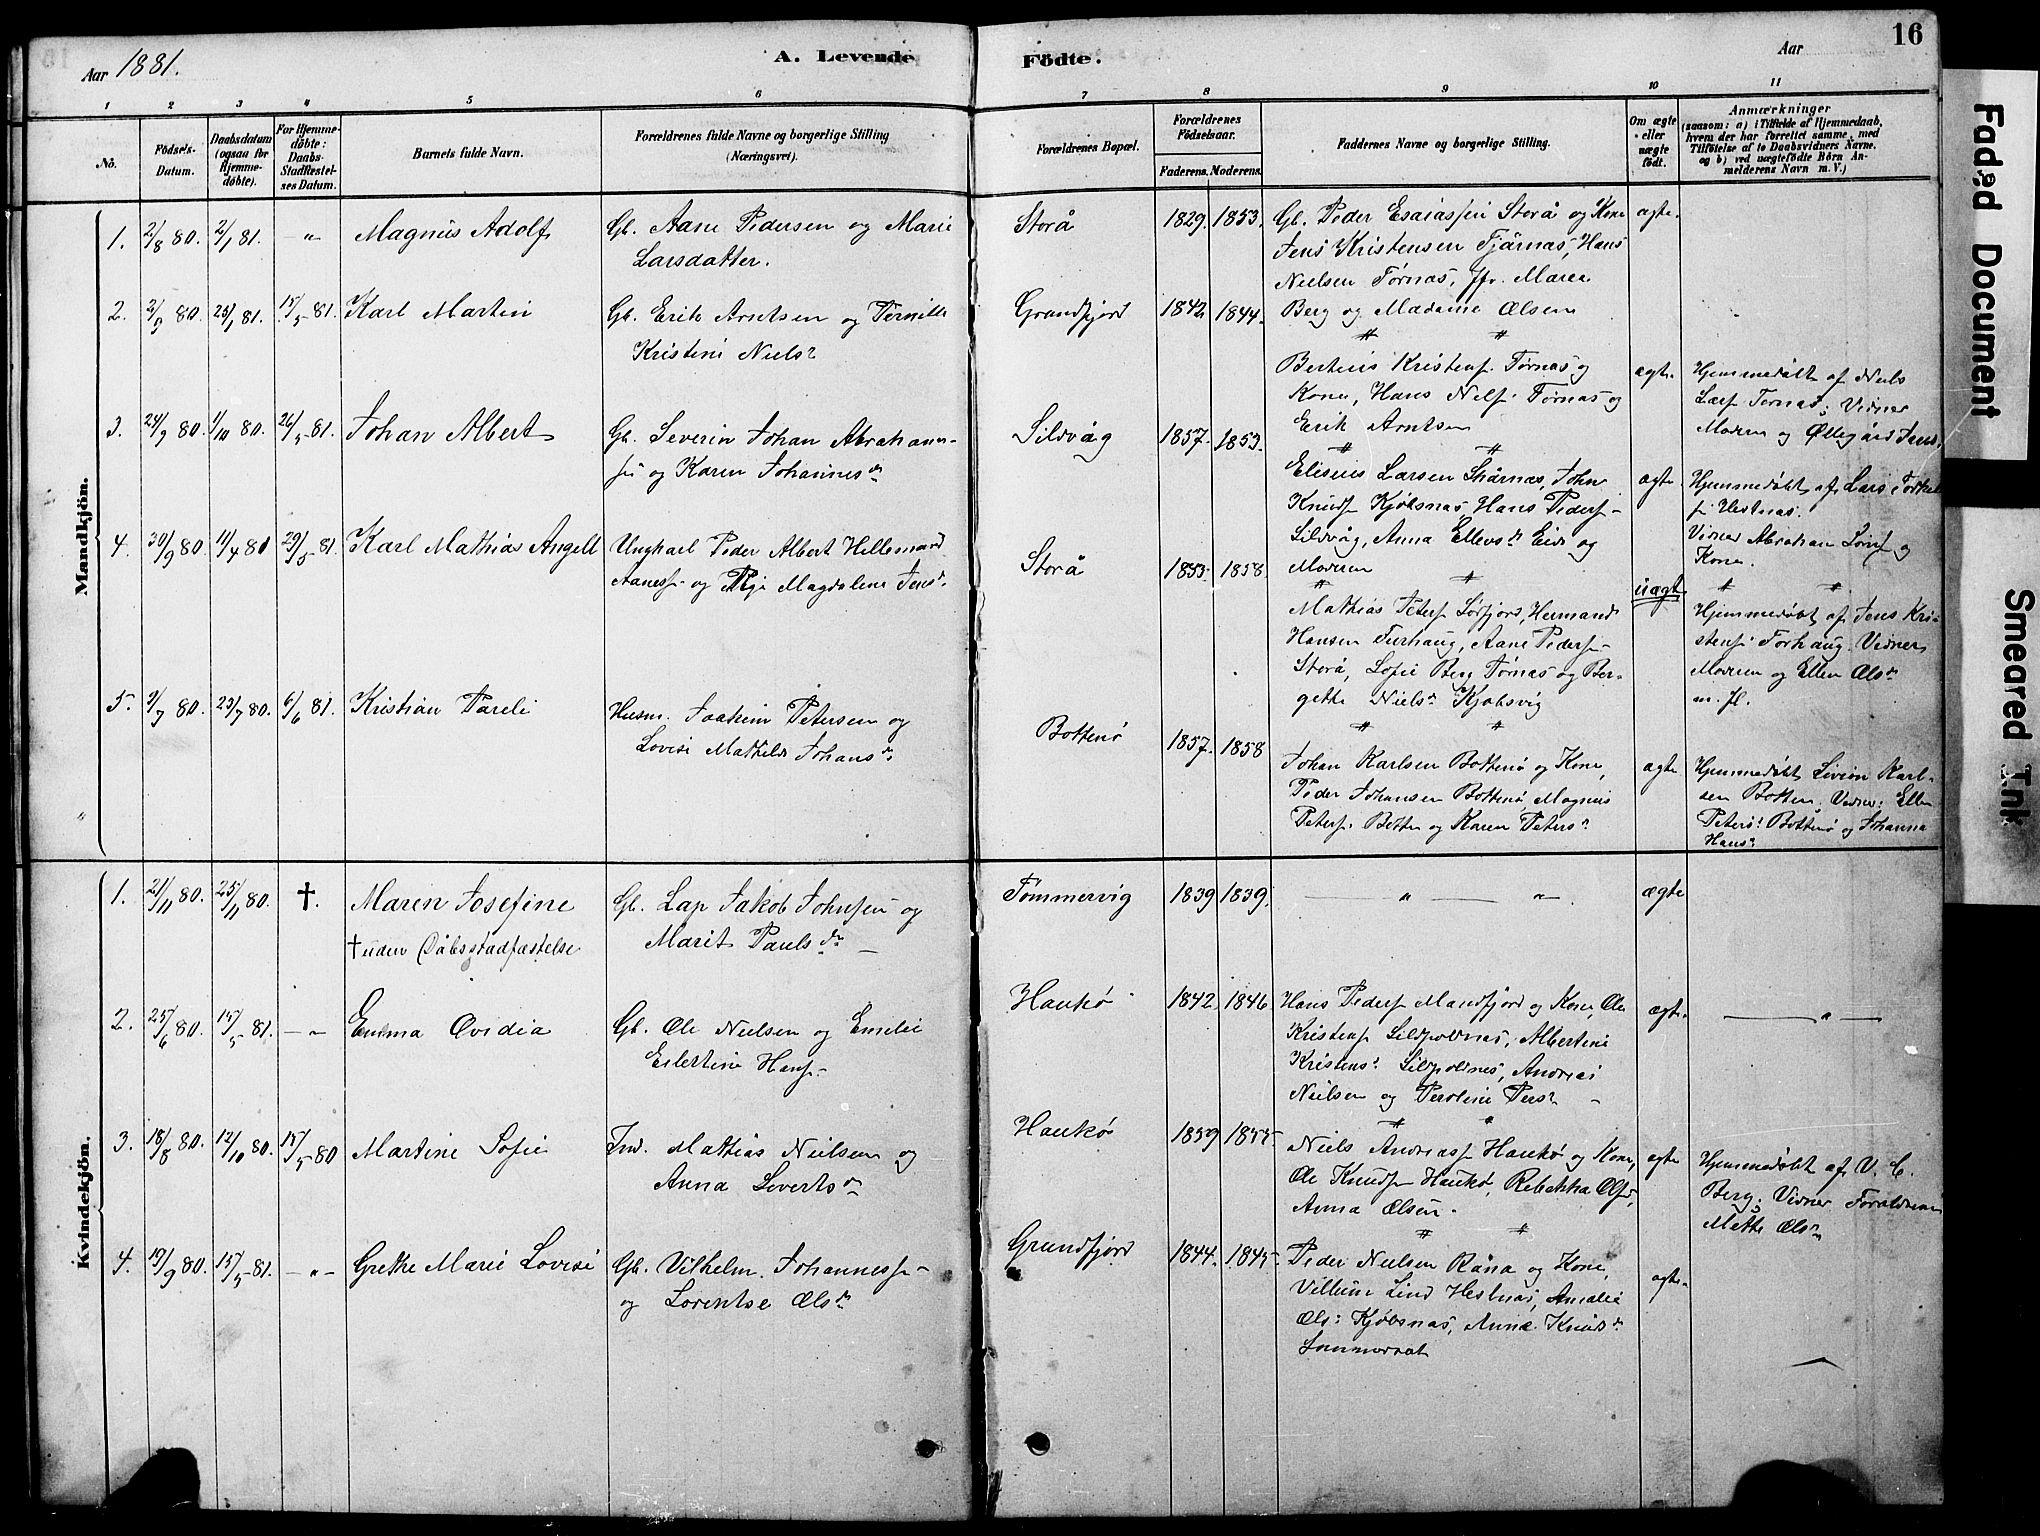 Aar 1881.
A. Levende
Födte.
Aar
16
1
2
3
4
5
6
7
8
9
10
11
No.
Födsels-
Datum.
Daabsdatum
(ogsaa for
Hjemme-
döbte).
For Hjemme-
döbte:
Daabs-
Stadfæstel-
ses Datum.
Barnets fulde Navn.
Forældrenes fulde Navne og borgerlige Stilling
(Næringsvei).
Forældrenes Bopæl.
Forældrenes
Födselsaar.
Faderens. Moderens.
Faddernes Navne og borgerlige Stilling.
Om ægte
eller
uægte
födt.
Anmærkninger
(saasom: a) i Tilfælde af Hjemmedaab,
hvem der har forrettet samme, med
Tilföielse af to Daabsvidners Navne,
og b) ved uægtefödte Börn An-
melderens Navn m. V.)
Mandkjön.
1. 2/8 80. 2/1 81. - " Magnus Adolf
Gb. Aane Pedersen og Marie
Larsdatter.
Storå 1829. 1853.
Gb. Peder Esaiassen Storå og Kone
Jens Kristensen Tjärnas, Hans
Nielsen Törnas, Jfr. Maren
Berg og Madame Olsen
ægte.
2. 2/9 80. 23/1 81. 15/5 81. Karl Martin
Gb. Erik Arntsen og Pernille
Kristine Niels
Grundfjord 1842 1844.
Bertius Kristens. Törnas og
Kone, Hans Nels. Törnas og
Erik Arntsen
ægte.
Hjemmedöbt af Niels
Lars. Tornas; Vidner
Moderen og Øllegård Jens.
3. 24/9 80. 1/10 80. 26/5 81. Johan Albert
Gb. Severin Johan Abraham-
sen og Karen Johannes dr
Sildvåg 1857. 1853.
Eliseus Larsen Skårnas, John
Knuds. Kjöbsnas, Hans Peders.
Sildvåg, Anna Ellevs dr Eide og
Moderen
ægte
Hjemmedöbt af Lars Torkel
s. Hestnas.
Vidner Abraham og
Kone.
4. 30/9 80. 11/4 81 29/5 81. Karl Mathias Angell
Ungkarl Peder Albert Hillemand
Aaness. og Pige Magdalene Jens dr.
Storå 1853. 1858.
Mathias Peters. Sörfjord, Hermand
Hansen Furhaug, Aane Peders.
Storå, Sofie Berg Törnas og Ber-
gette Niels dr Kjobsvig
uægte
Hjemmedöbt af Jens Kri-
stens. Forhaug. Vidner
Moderen og Ellen Ols dr
m. fl.
5. 9/7 80. 23/7 80. 6/6 81. Kristian Pareli
Husm. Joakim Petersen og
Lovise Mathilde Johans dr.
Bottenö 1857. 1858
Johan Karlsen Bottenö og Kone,
Peder Johansen Bottenö, Magnus
Peters. Botten og Karen Peters dr
ægte
Hjemmedöbt Sivion Karl-
sen Botten, Vidner: Ellen
Peters dr Bottenö og Johanna
Hans dr
Kvindekjön.
1. 21/11 80. 25/11 80. †. Maren Josefine
† uden Dåbsstadfæstelse
Gb. Lap Jakob Johnsen og
Marit Pauls dr
Tömmervig 1839 1839.
" "
ægte
2. 25/6 80. 15/5 81. - " Emma Ovidia
Gb. Ole Nielsen og Emilie
Eilertine Hans.
Haukö 1842 1846
Hans Peders. Mandfjord og Kone, Ole
Kristens. Sildpoldnas, Albertine
Kristens dr Sildpoldnes, Andreas
Nielsen og Peroline Pers dr
ægte.
"
3. 18/8 80. 12/10 80. 15/5 80 Martine Sofie
Ind. Mattias Nielsen og
Anna Siverts dr
Haukö 1859 1855.
Niels Andreass. Haukö og Kone,
Ole Knuds. Haukö, Rebekka Ols dr,
Anna Olsen.
ægte
Hjemmedöbt af V. C.
Berg; Vidner Forældrene
Mette Ols dr
4. 19/9 80. 15/5 81. - " - Grethe Marie Lovise
Gb. Vilhelm Johanness.
og Lorentse Ols dr
Grundfjord 1844. 1845.
Peder Nielsen Råna og Kone,
Villum Lind Hestnas, Amalie
Ols dr Kjöbsnas, Anna Knuds dr
Sommerset
ægte.
Faded Document
Smeared Ink